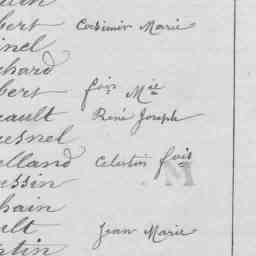 bert Casimir Marie
inel
chard
bert fois Mie
eault René Joseph
uesnel
elland Celestin fois
ussin
hain
ult Jean Marie
ptin